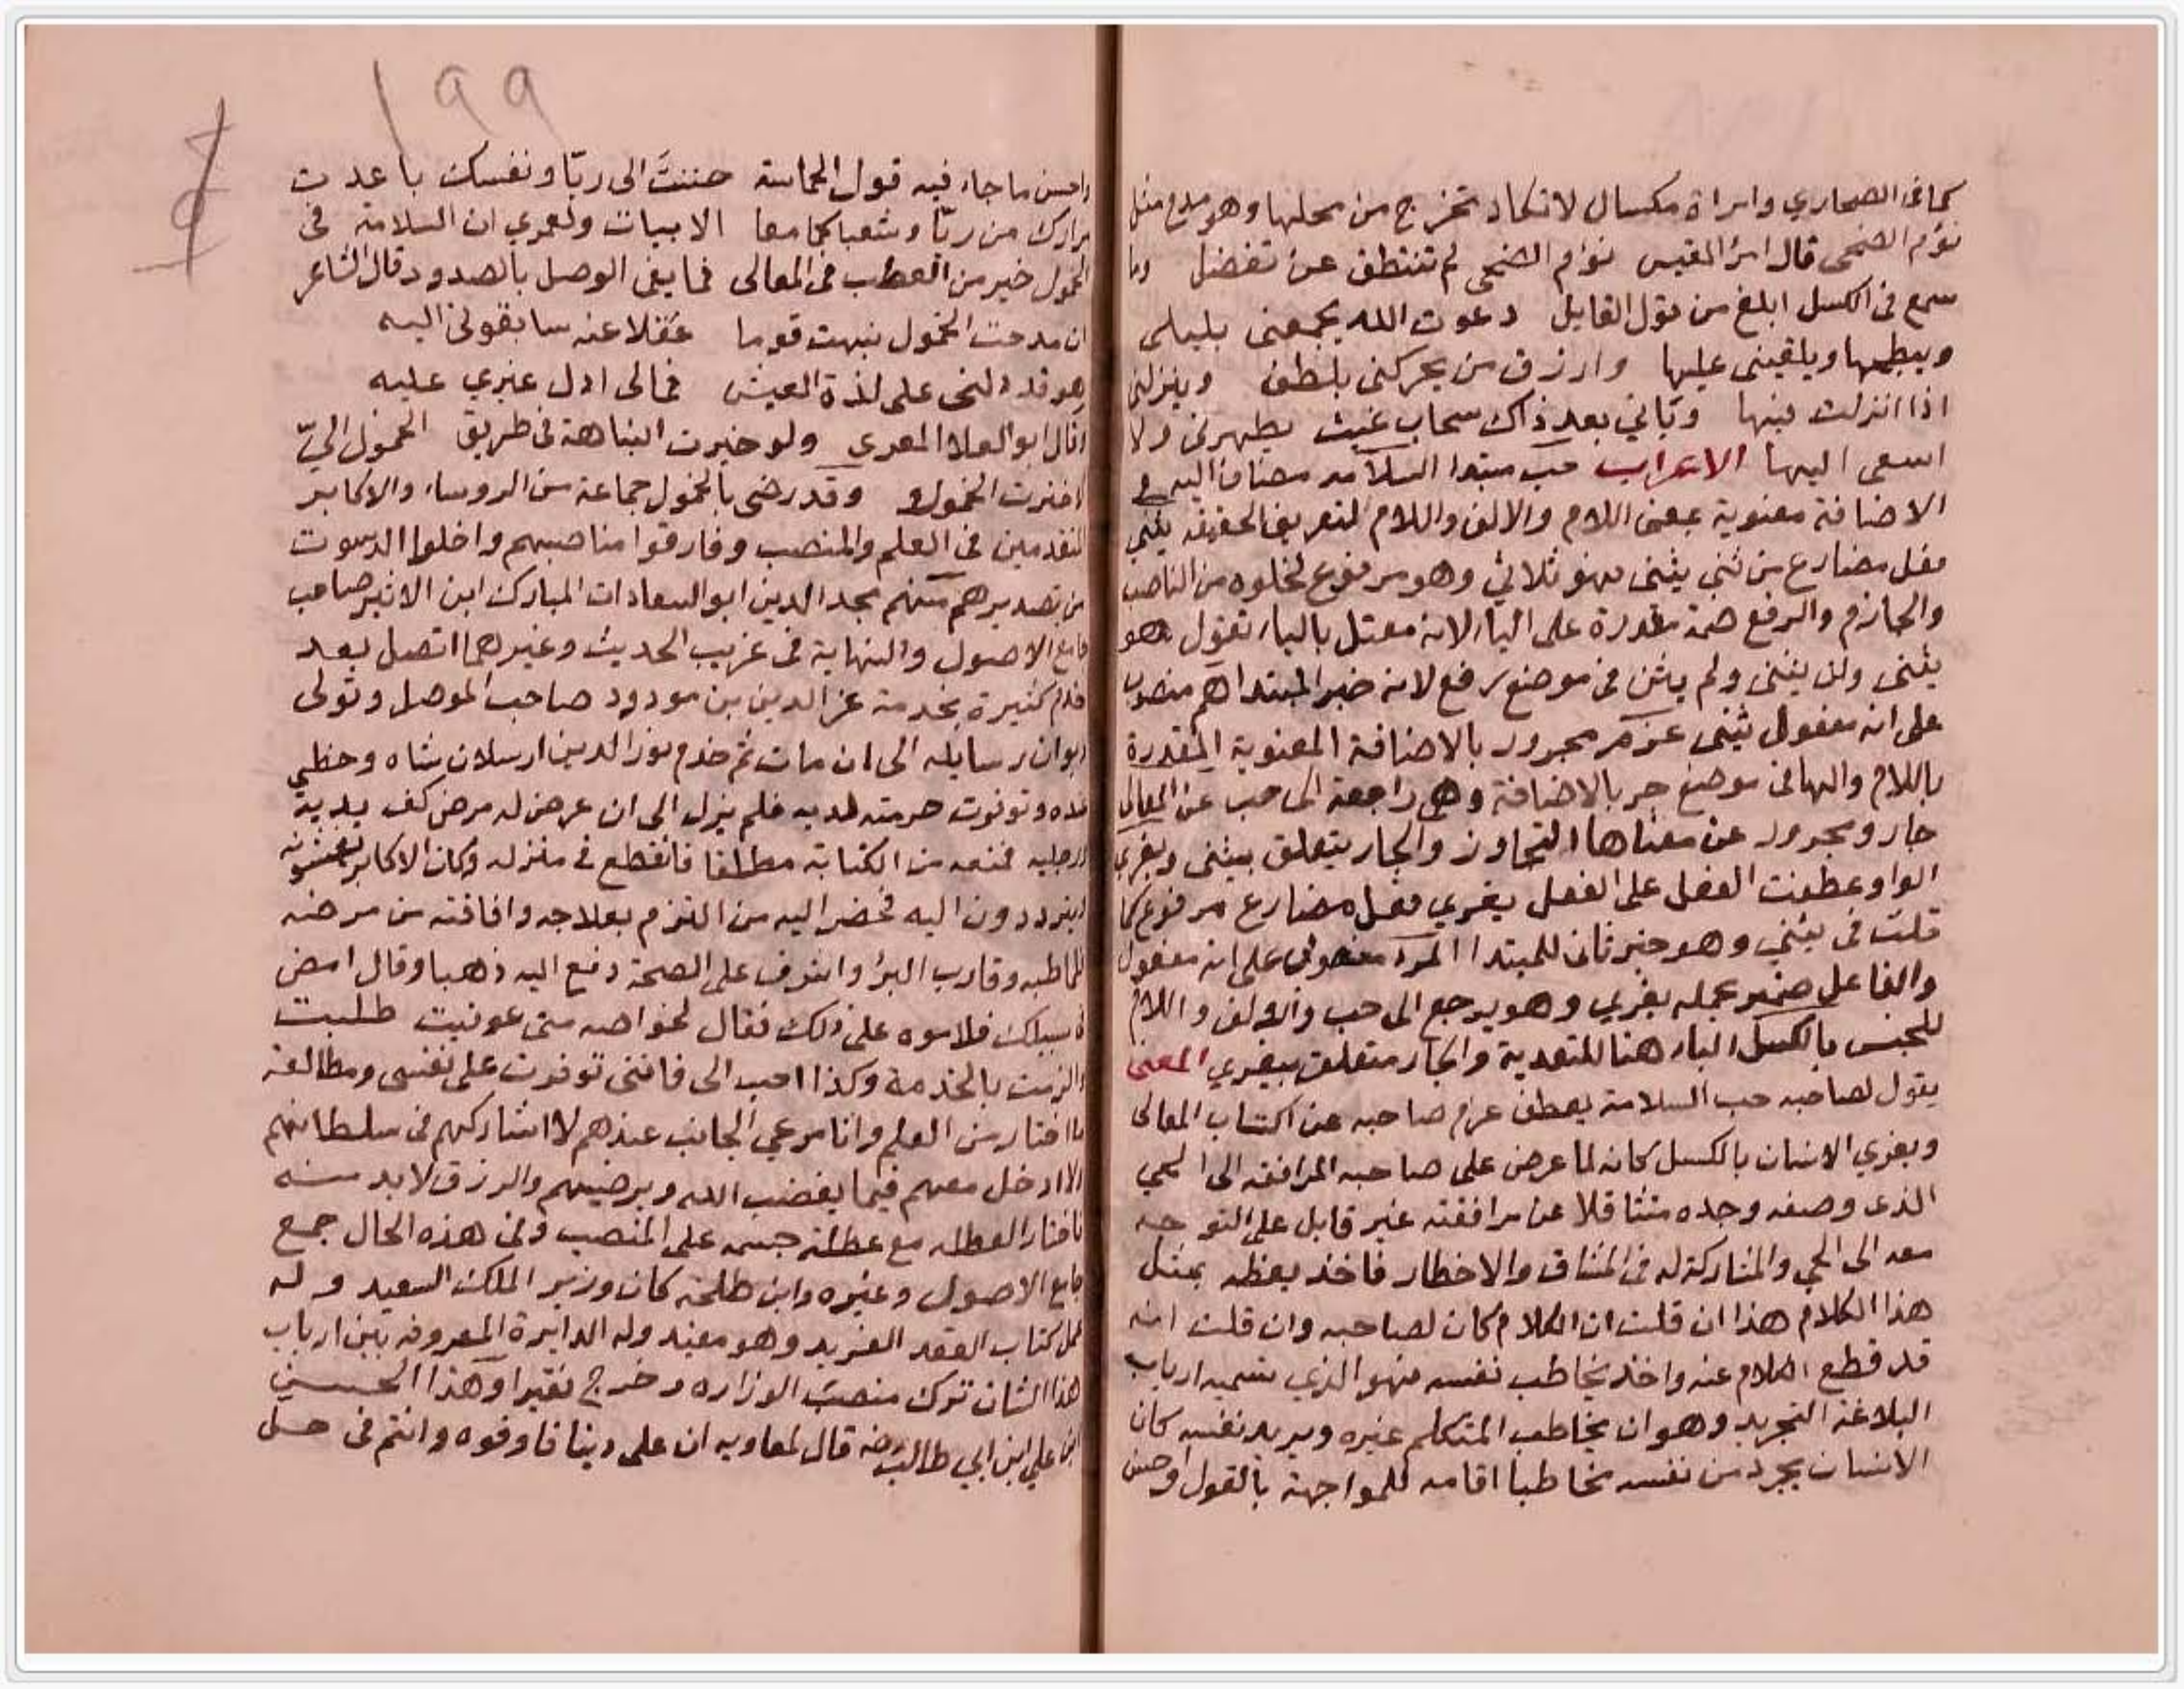 كما في الصحاري وامراة مكسال لا تكاد تخرج من محلها وهو مدح مثل
نؤم الضحى قال امرؤ القيس نؤم الضحى لم تنتطق عن تفضل وما
سمع في الكسل ابلغ من قول القايل دعوت الله يجمعني بليلى
ويبطحها ويلقيني عليها وارزق من يحركني بلطف وينزلني
اذا انزلت فيها وياتي بعد ذاك سحاب غيث يطهرني ولا
اسعى اليها الاعراب حب مبتدا السلامه مضاف اليه
الاضافة معنوية بمعنى اللام والالف واللام لتعريف الحقيقه يثني
فعل مضارع من ثنى يثني فهو ثلاثي وهو مرفوع لخلوه من الناصب
والجازم والرفع ضمة مقدرة على اليا لانه معتل باليا تقول هو
يثني ولن يثني ولم يثن في موضع رفع لانه خبر المبتدا هم منصوب
على انه مفعول يثني عزم مجرور بالاضافة المعنوية المقدرة
باللام والها في موضع جر بالاضافة وهي راجعة الى حب عن المعالي
جار ومجرور عن معناها التجاوز والجار يتعلق بيثني ويغري
الواو عطفت الفعل على الفعل يغري فعل مضارع مرفوع كما
قلت في يثني وهو خبر ثان للمبتدا المرء منصوب على انه مفعول
والفاعل ضمير عمله يغري وهو يرجع الى حب والالف واللام
للجنس بالكسل الباء هنا للتعدية والجار متعلق بيغري المعنى
يقول لصاحبه حب السلامة يعطف عزم صاحبه عن اكتساب المعالي
ويغري الانسان بالكسل كانه لما عرض على صاحبه المرافقه الى الحي
الذى وصفه وجده متثاقلا عن مرافقته غير قابل على التوجه
معه الى الحي والمشاركة له في المشاق والاخطار فاخذ يعظه بمثل
هذا الكلام هذا ان قلت ان الكلام كان لصاحبه وان قلت انه
قد قطع الكلام عنه واخذ يخاطب نفسه فهو الذي يسميه ارباب
البلاغة التجريد وهو ان يخاطب المتكلم غيره ويريد نفسه كان
الانسان يجرد من نفسه مخاطبا اقامه للمواجهة بالقول
١٩٩
واحسن ما جاء فيه قول الحماسة حننتَ الى ريّا ونفسك باعدت
مزارك من ريّا وشعباكما معا الابيات ولعمري ان السلامة في
الخمول خير من العطب في المعالي فما يفى الوصل بالصدود قال الشاعر
ان مدحت الخمول نبهت قوما غفلا عنه سابقوني اليه
هو قد دلنى على لذة العيش فمالى ادل غيري عليه
وقال ابو العلا المعري ولو خيرت النباهة في طريق الخمول اليّ
لاخترت الخمولا وقد رضى بالخمول جماعة من الروساء والاكابر
المتقدمين في العلم والمنصب وفارقوا مناصبهم واخلوا الدسوت
من تصديرهم منهم مجد الدين ابو السعادات المبارك ابن الاثير صاحب
جامع الاصول والنهاية في غريب الحديث وغيرهما اتصل بعد
خدم كثيرة بخدمة عز الدين بن مودود صاحب الموصل وتولى
ديوان رسايله الى ان مات ثم خدم نور الدين ارسلان شاه وحظى
عنده وتوفرت حرمته لديه فلم يزل الى ان عرض له مرض كف يديه
ورجليه فمنعه من الكتابة مطلقا فانقطع في منزله وكان الاكابر يغشونه
ويترددون اليه فحضر اليه من التزم بعلاجه وافاقته من مرضه
فلما طبه وقارب البرأ واشرف على الصحة دفع اليه ذهبا وقال امض
في سبيلك فلاموه على ذلك فقال لخواصه متى عوفيت طلبت
والزمت بالخدمة وكذا احب الى فانني توفرت على نفسى ومطالعة
ما اختار من العلم وانا مرعي الجانب عندهم لا اشاركهم في سلطانهم
ولا ادخل معهم فيما يغضب الله ويرضيهم والرزق لابد منه
فاختار العطله مع عطلة جسمه على المنصب وفي هذه الحال جمع
جامع الاصول وغيره وابن طلحة كان وزير الملك السعيد وله
عمل كتاب العقد الفريد وهو مفيد وله الدايرة المعروفه بين ارباب
هذا الشان ترك منصب الوزاره وخرج فقيرا وهذا الحسين
ابن علي ابن ابي طالب رضه قال لمعاويه ان على دينا فاوفوه وانتم في حل